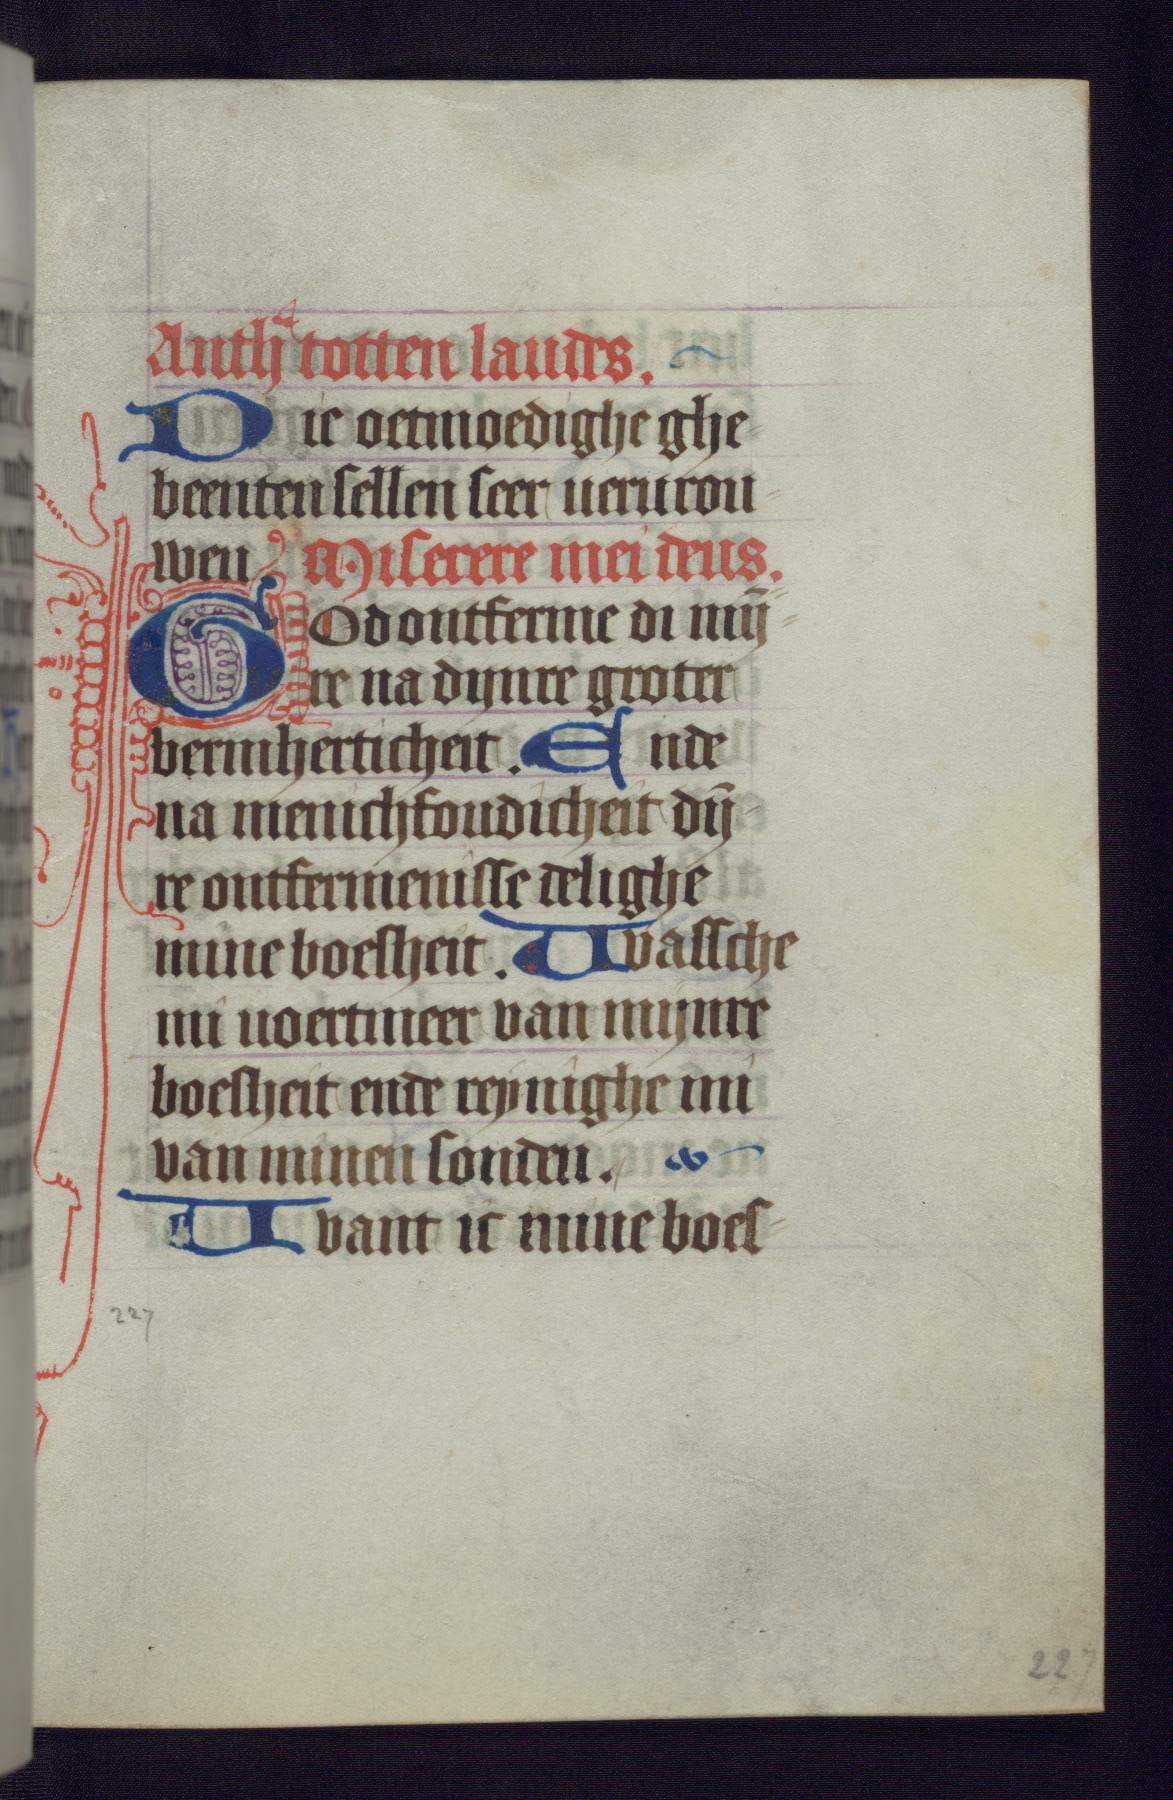 Anthᵃ totten laudes.
Die oetmoedighe ghe
beenten sellen seer verurou
wen. Miserere mei deus.
God ontferme di mij̄
re na dijnre groter
bermherticheit. Ende
na menichfoudicheit dij̄
re ontfermenisse delighe
mine boesheit. Wassche
mi voertmeer van mijnre
boesheit ende reynighe mi
van minen sonden.
Want ic mine boes
227
227